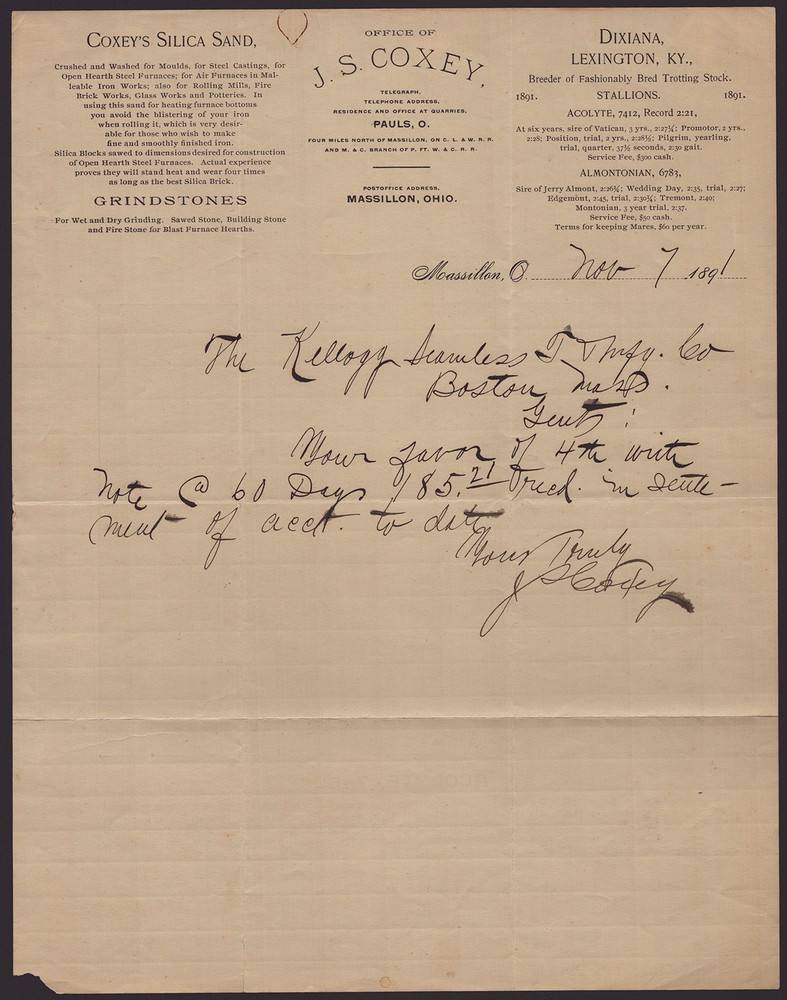 COXEY'S SILICA SAND,
Crushed and Washed for Moulds, for Steel Castings, for
Open Hearth Steel Furnaces; for Air Furnaces in Mal-
leable Iron Works; also for Rolling Mills, Fire
Brick Works, Glass Works and Potteries. In
using this sand for heating furnace bottoms
you avoid the blistering of your iron
when rolling it, which is very desir-
able for those who wish to make
fine and smoothly finished iron.
Silica Blocks sawed to dimensions desired for construction
of Open Hearth Steel Furnaces. Actual experience
proves they will stand heat and wear four times
as long as the best Silica Brick.
GRINDSTONES
For Wet and Dry Grinding. Sawed Stone, Building Stone
and Fire Stone for Blast Furnace Hearths.
OFFICE OF
J. S. COXEY,
TELEGRAPH,
TELEPHONE ADDRESS,
RESIDENCE AND OFFICE AT QUARRIES,
PAULS, O.
FOUR MILES NORTH OF MASSILLON, ON C. L. & W. R. R.
AND M. & C. BRANCH OF P. FT. W. & C. R. R.
POSTOFFICE ADDRESS,
MASSILLON, OHIO.
DIXIANA,
LEXINGTON, KY.,
Breeder of Fashionably Bred Trotting Stock.
1891. STALLIONS. 1891.
ACOLYTE, 7412, Record 2:21,
At six years, sire of Vatican, 3 yrs., 2:27¾; Promotor, 2 yrs.,
2:28; Position, trial, 2 yrs., 2:28½; Pilgrim, yearling,
trial, quarter, 37½ seconds, 2:30 gait.
Service Fee, $300 cash.
ALMONTONIAN, 6783,
Sire of Jerry Almont, 2:26¾; Wedding Day, 2:35, trial, 2:27;
Edgemont, 2:45, trial, 2:30¾; Tremont, 2:40;
Montonian, 3 year trial, 2:37.
Service Fee, $50 cash.
Terms for keeping Mares, $60 per year.
Massillon, O. Nov 7 1891
The Kellogg Seamless T & mfg. Co
Boston Mass.
Gents:
Your favor of 4th with
Note @ 60 Days 185.21 recd. in settle-
ment of acct. to date
Yours Truly
J S Coxey